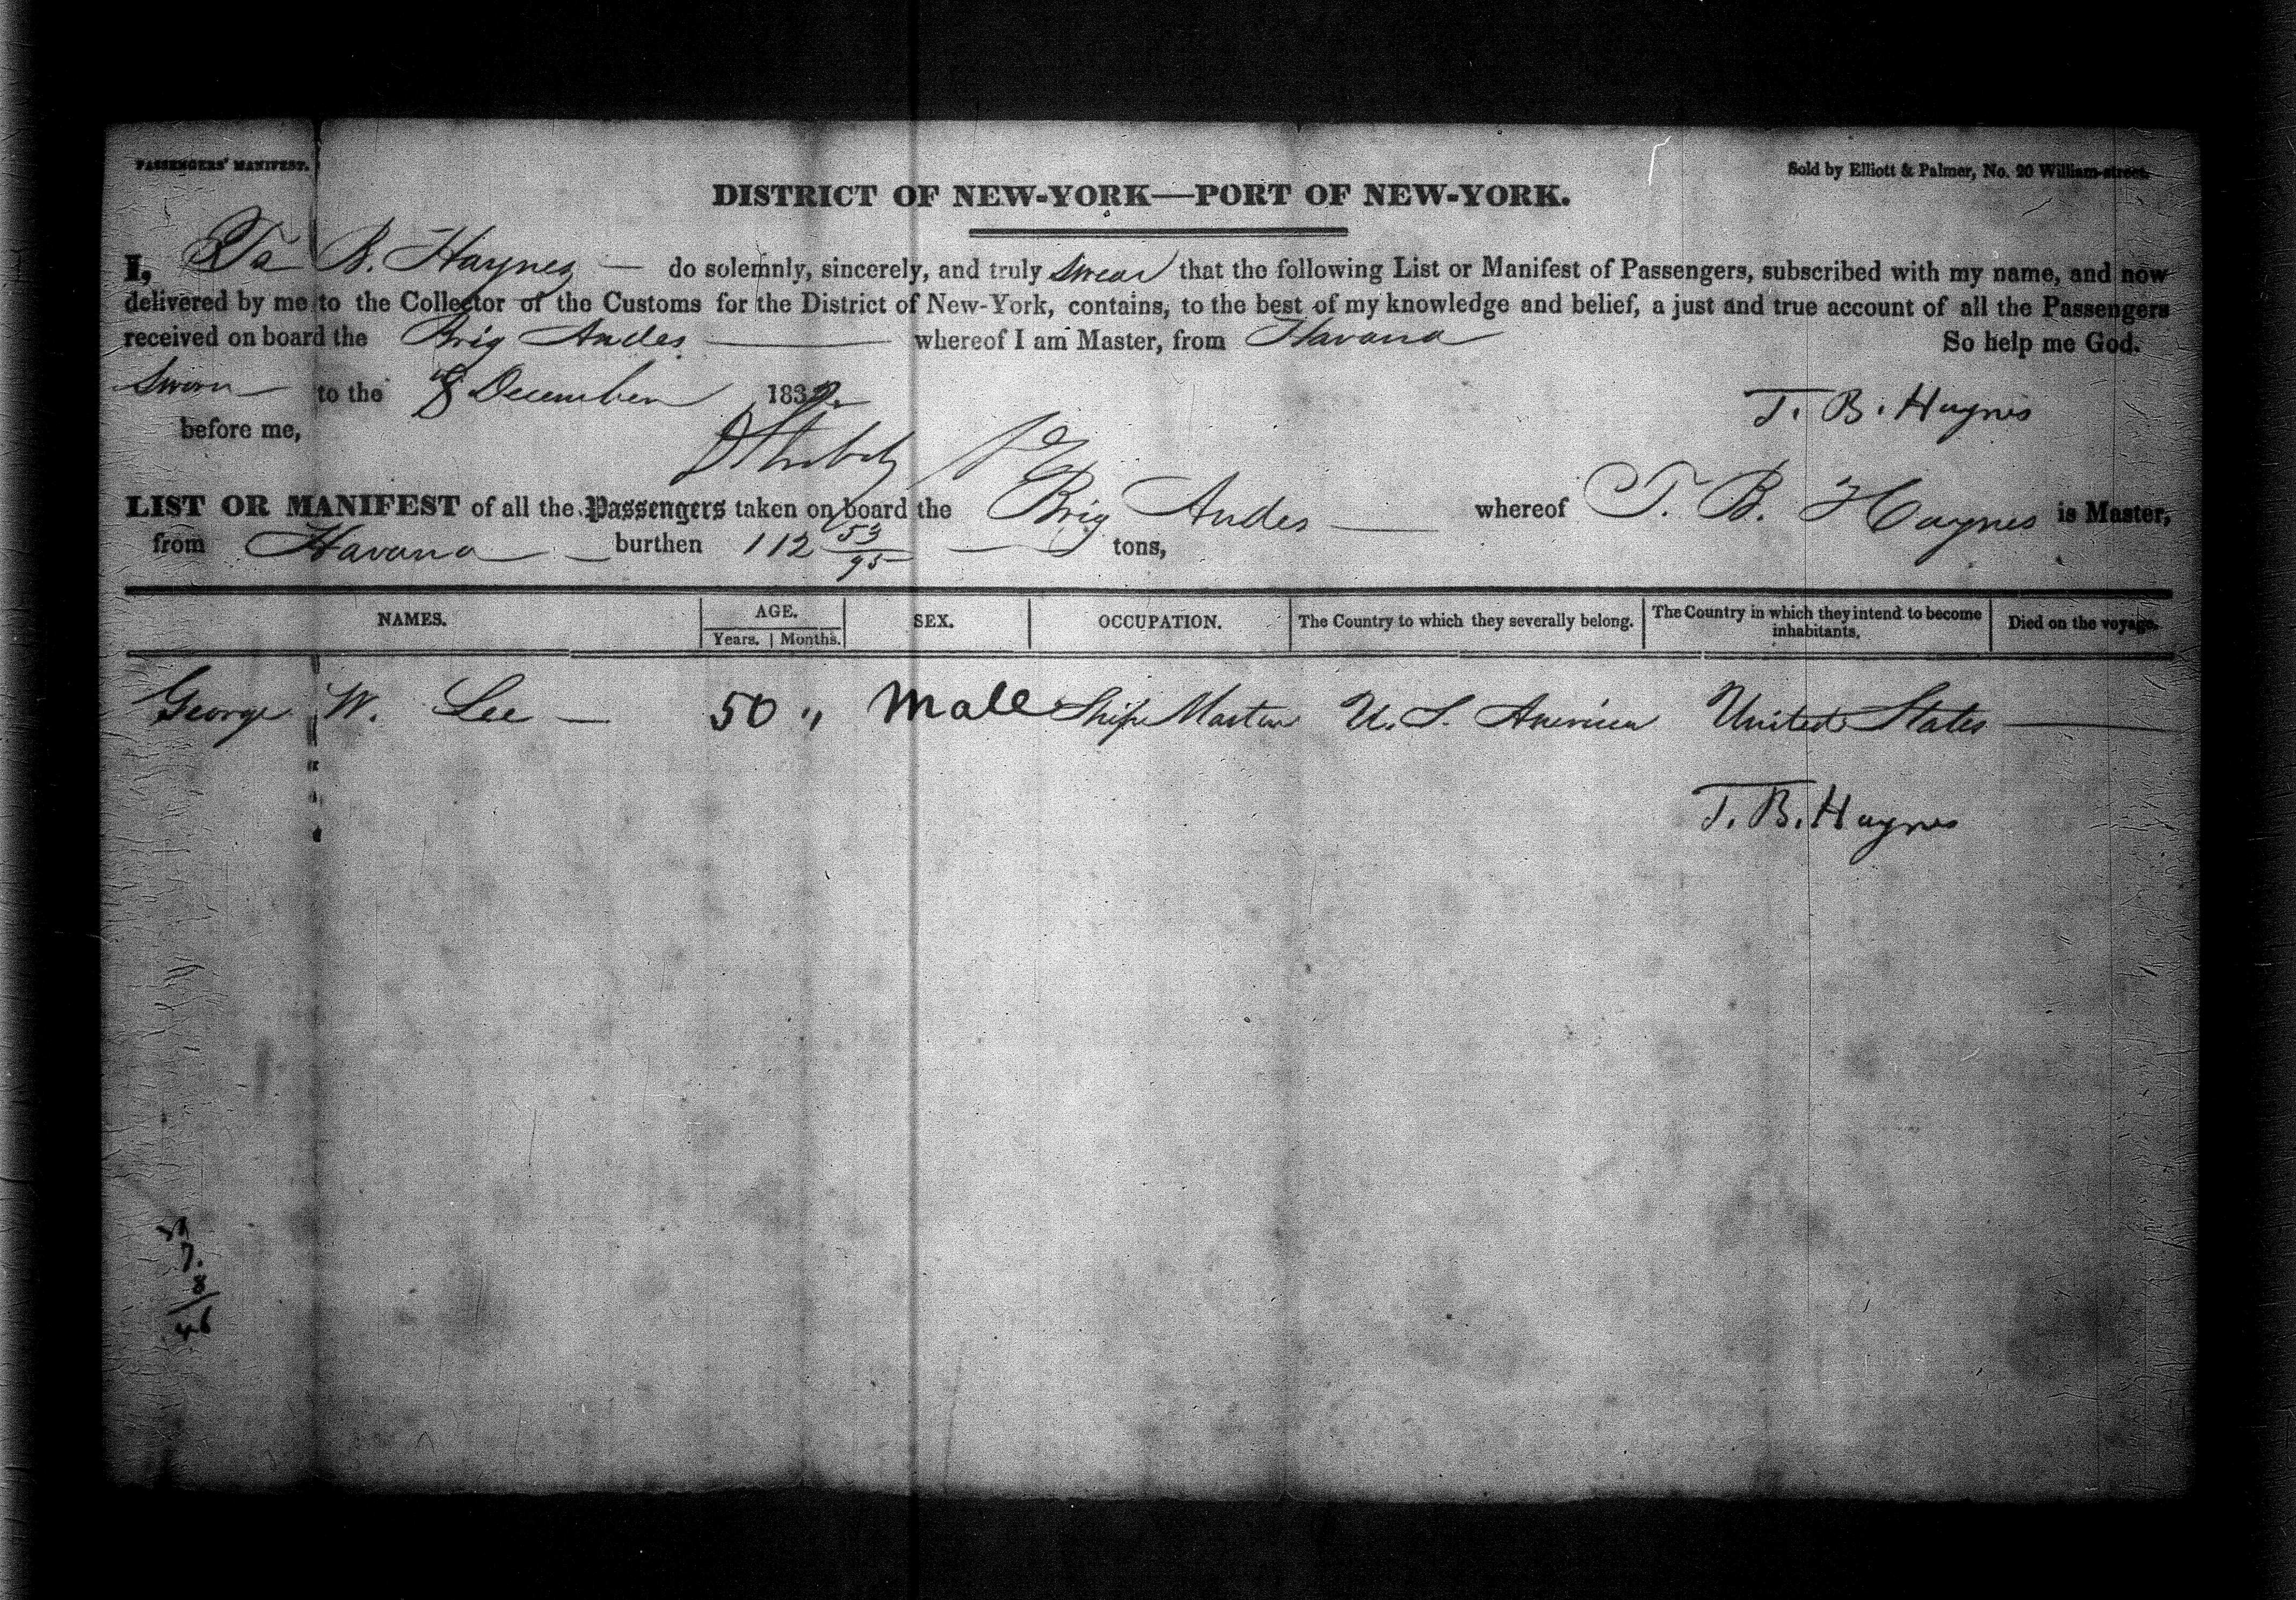 PASSENGERS' MANIFEST.
Sold by Elliott & Palmer, No. 20 William-street.
DISTRICT OF NEW-YORK—PORT OF NEW-YORK.
I, B. Haynes — do solemnly, sincerely, and truly Swear that the following List or Manifest of Passengers, subscribed with my name, and now
delivered by me to the Collector of the Customs for the District of New-York, contains, to the best of my knowledge and belief, a just and true account of all the Passengers
received on board the Brig Andes — whereof I am Master, from Havana So help me God.
Sworn to the 8 December 1832.
T. B. Haynes
before me,
LIST OR MANIFEST of all the Passengers taken on board the Brig Andes — whereof T. B. Haynes is Master,
from Havana — burthen 112 53/95 — tons,
NAMES. AGE. Years. Months. SEX. OCCUPATION. The Country to which they severally belong. The Country in which they intend to become inhabitants. Died on the voyage.
George W. Lee — 50 " Male Ship Master U. S. America United States —
T. B. Haynes
7.
8
46